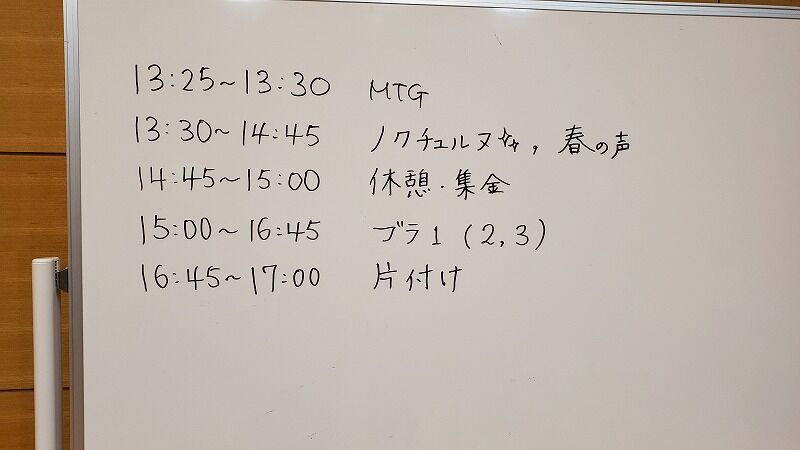 13:25~13:30 MTG
13:30~14:45 ノクチェルヌ☆☆, 春の声
14:45~15:00 休憩・集金
15:00~16:45 ブラ1 (2,3)
16:45~17:00 片付け